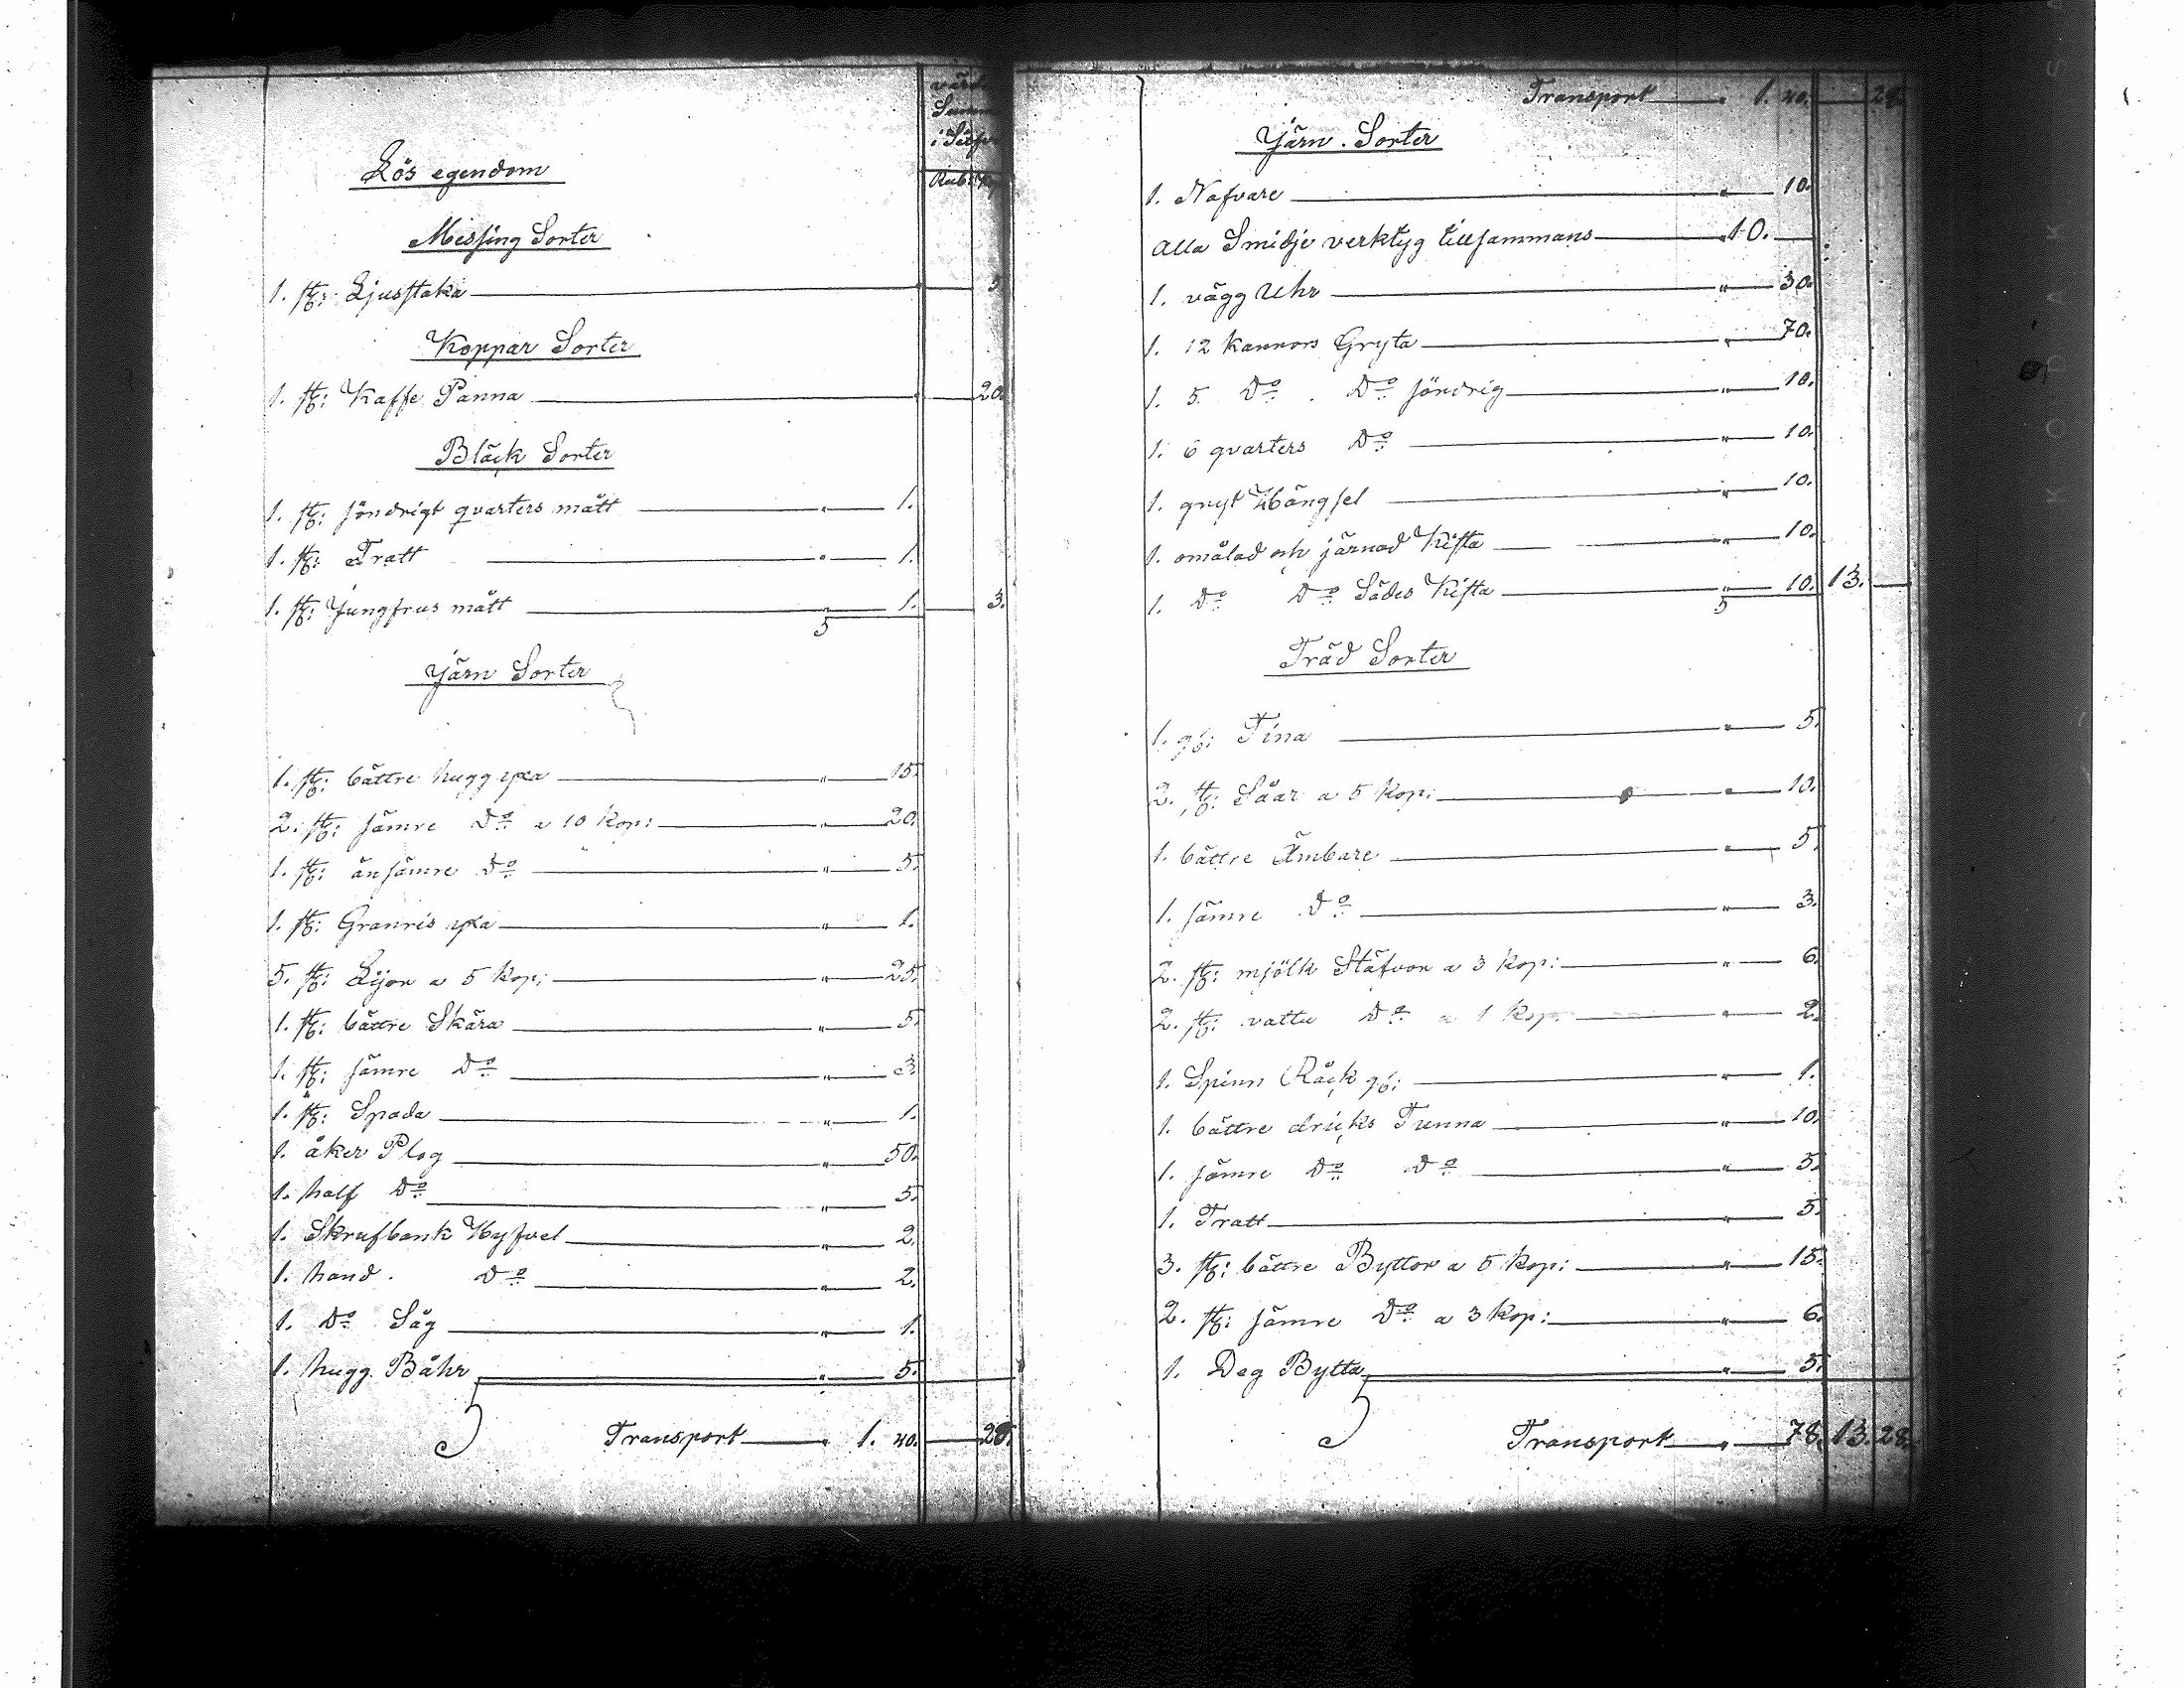 värde
Sum
i Silfv
Rub: Kop
Lös egendom
Messing Sorter
1. st: Ljusstaka 5
Koppar Sorter
1. st: Kaffe Panna 20.
Bläck Sorter
1. st: söndrigt qvarters mått " 1.
1. st: Tratt " 1.
1. st: Jungfrus mått " 1. 3.
Järn Sorter
1. st: bättre hugg yxa " 15.
2. st: sämre Do a 10 kop: " 20.
1. st: än sämre Do " 5.
1. st: Granris yxa " 1.
5. st: Lijor a 5 kop: " 25.
1. st: bättre Skära " 5.
1. st: sämre Do " 3.
1. st: Spada " 1.
1. åker Plog " 50.
1. half Do " 5.
1. Skrufbank Hyfvel " 2.
1. hand. Do " 2.
1. Do Såg " 1.
1. hugg Båhr " 5.
Transport " 1. 40. 28.
Transport " 1. 40. 28.
Järn. Sorter
1. Nafvare " 10.
Alla Smidje verktyg tillsammans " 10.
1. vägg Uhr " 30.
1. 12 kannors Gryta " 70.
1. 5. Do. Do söndrig " 10.
1. 6 qvarters Do " 10.
1. gryt Hängsel " 10.
1. omålad och järnad Kista " 10.
1. Do Do Sädes Kista " 10. 13.
Träd Sorter
1. gl: Tina " 5.
2. st: Såar a 5 kop: " 10.
1. bättre Ämbare " 5.
1. sämre Do " 3.
2. st: mjölk Stäfvor a 3 kop: " 6.
2. st: vattu Do a 1 kop: " 2.
1. Spinn Råck gl: " 1.
1. bättre dricks Tunna " 10.
1. sämre Do Do " 5.
1. Tratt " 5.
3. st: bättre Byttor a 5 kop: " 15.
2. st: sämre Do a 3 kop: " 6.
1. Deg Bytta " 5.
Transport " 78. 13. 28.
KODAK